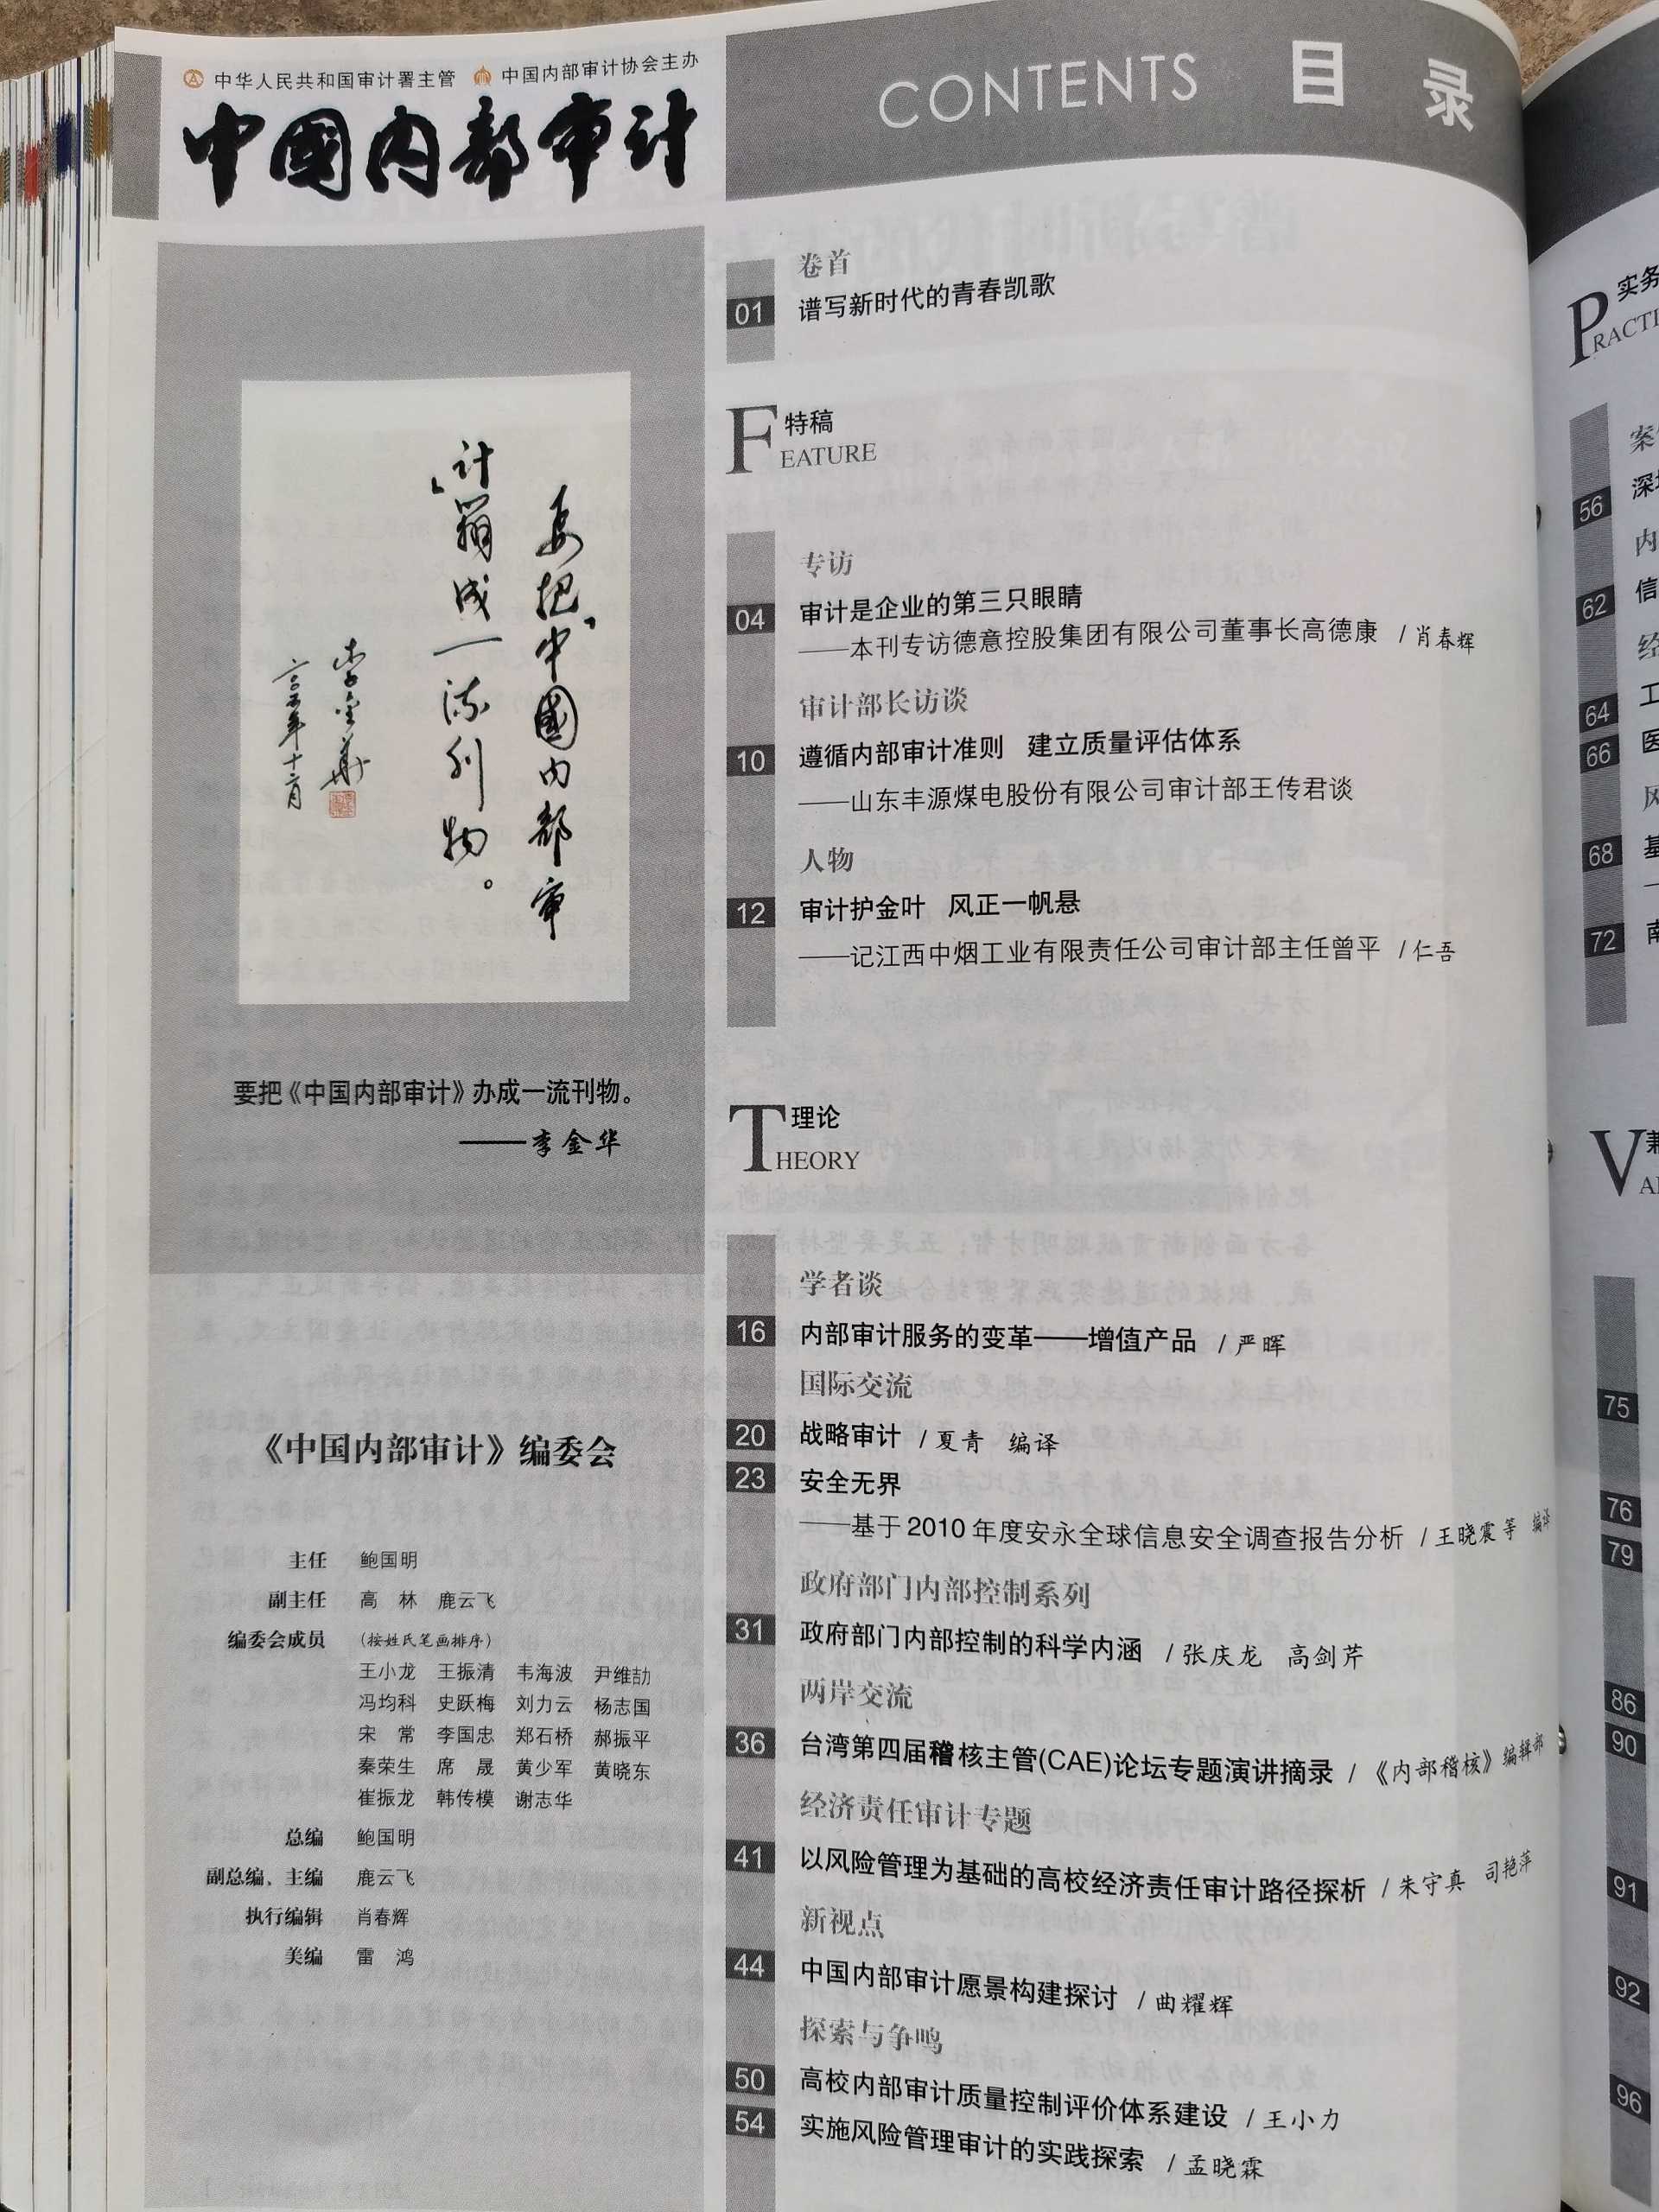 中华人民共和国审计署主管 中国内部审计协会主办
中國内部审计
要把“中國内部审
计”办成一流刊物。
李金华
二〇〇五年十一月
要把《中国内部审计》办成一流刊物。
——李金华
《中国内部审计》编委会
主任 鲍国明
副主任 高 林 鹿云飞
编委会成员 (按姓氏笔画排序)
王小龙 王振清 韦海波 尹维劼
冯均科 史跃梅 刘力云 杨志国
宋 常 李国忠 郑石桥 郝振平
秦荣生 席 晟 黄少军 黄晓东
崔振龙 韩传模 谢志华
总编 鲍国明
副总编、主编 鹿云飞
执行编辑 肖春辉
美编 雷 鸿
CONTENTS 目 录
卷首
01 谱写新时代的青春凯歌
特稿
FEATURE
专访
04 审计是企业的第三只眼睛
——本刊专访德意控股集团有限公司董事长高德康 / 肖春辉
审计部长访谈
10 遵循内部审计准则 建立质量评估体系
——山东丰源煤电股份有限公司审计部王传君谈
人物
12 审计护金叶 风正一帆悬
——记江西中烟工业有限责任公司审计部主任曾平 / 仁吾
理论
THEORY
学者谈
16 内部审计服务的变革——增值产品 / 严晖
国际交流
20 战略审计 / 夏青 编译
23 安全无界
——基于2010年度安永全球信息安全调查报告分析 / 王晓震等 编译
政府部门内部控制系列
31 政府部门内部控制的科学内涵 / 张庆龙 高剑芹
两岸交流
36 台湾第四届稽核主管(CAE)论坛专题演讲摘录 / 《内部稽核》编辑部
经济责任审计专题
41 以风险管理为基础的高校经济责任审计路径探析 / 朱守真 司艳萍
新视点
44 中国内部审计愿景构建探讨 / 曲耀辉
探索与争鸣
50 高校内部审计质量控制评价体系建设 / 王小力
54 实施风险管理审计的实践探索 / 孟晓霖
实务
PRACTI
56 深
62 信
64 工
66 医
68 基
72 南
75
76
79
86
90
91
92
96